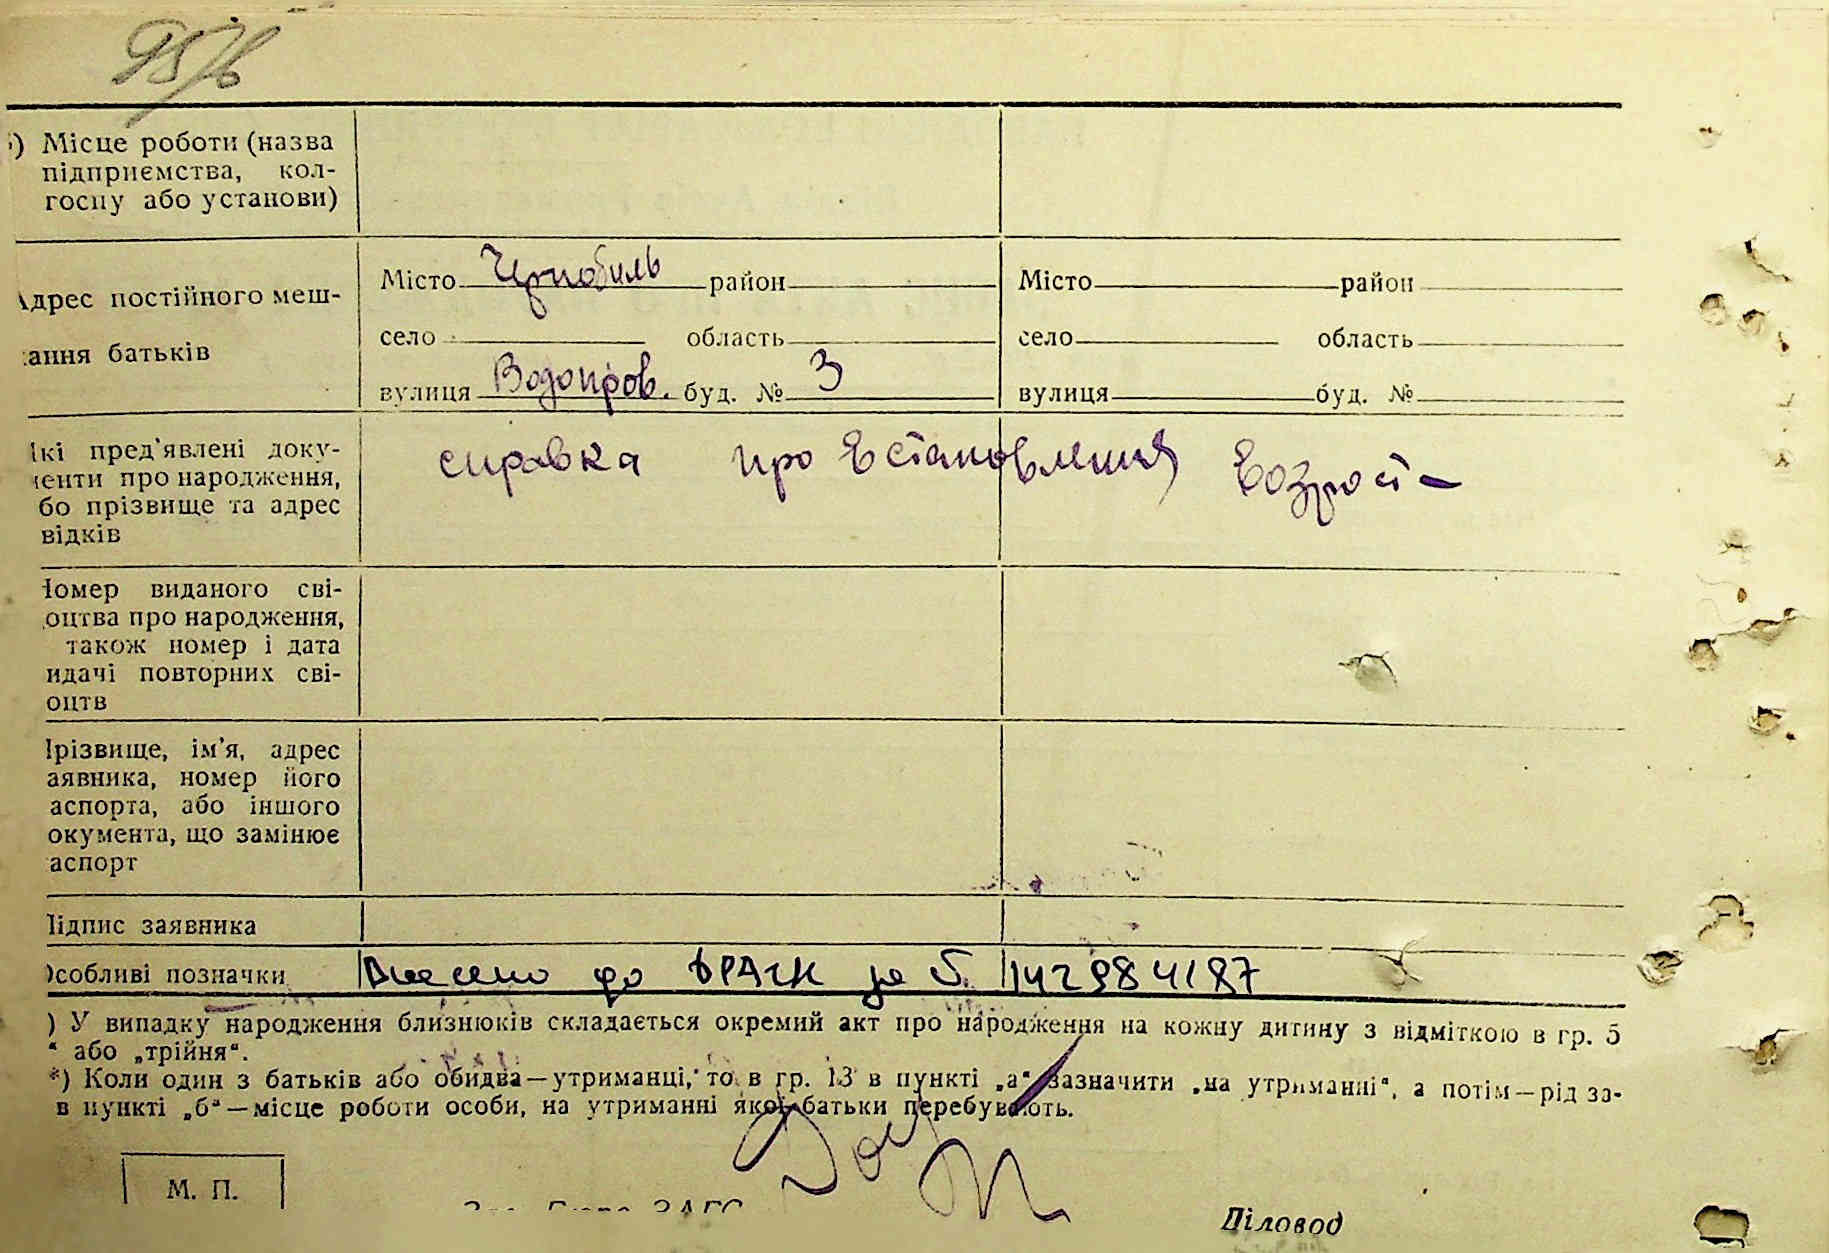 95/6
) Місце роботи (назва
підприємства, кол-
госпу або установи)
Адрес постійного меш-
кання батьків
Місто Чернобиль район
село область
вулиця Водопров. буд. № 3
Місто район
село область
вулиця буд. №
Які пред'явлені доку-
менти про народження,
бо прізвище та адрес
відків
справка про встановлення возраста
Номер виданого сві-
оцтва про народження,
також номер і дата
идачі повторних сві-
оцтв
Прізвище, ім'я, адрес
аявника, номер його
аспорта, або іншого
окумента, що замінює
аспорт
Підпис заявника
Особливі позначки Внесено до ДРАЦС за
) У випадку народження близнюків складається окремий акт про народження на кожну дитину з відміткою в гр. 5
" або „трійня".
*) Коли один з батьків або обидва—утриманці, то в гр. 13 в пункті „а" зазначити „на утриманні", а потім—рід за-
в пункті „б"—місце роботи особи, на утриманні якої батьки перебувають.
М. П.
Зав. Бюро ЗАГС
Діловод